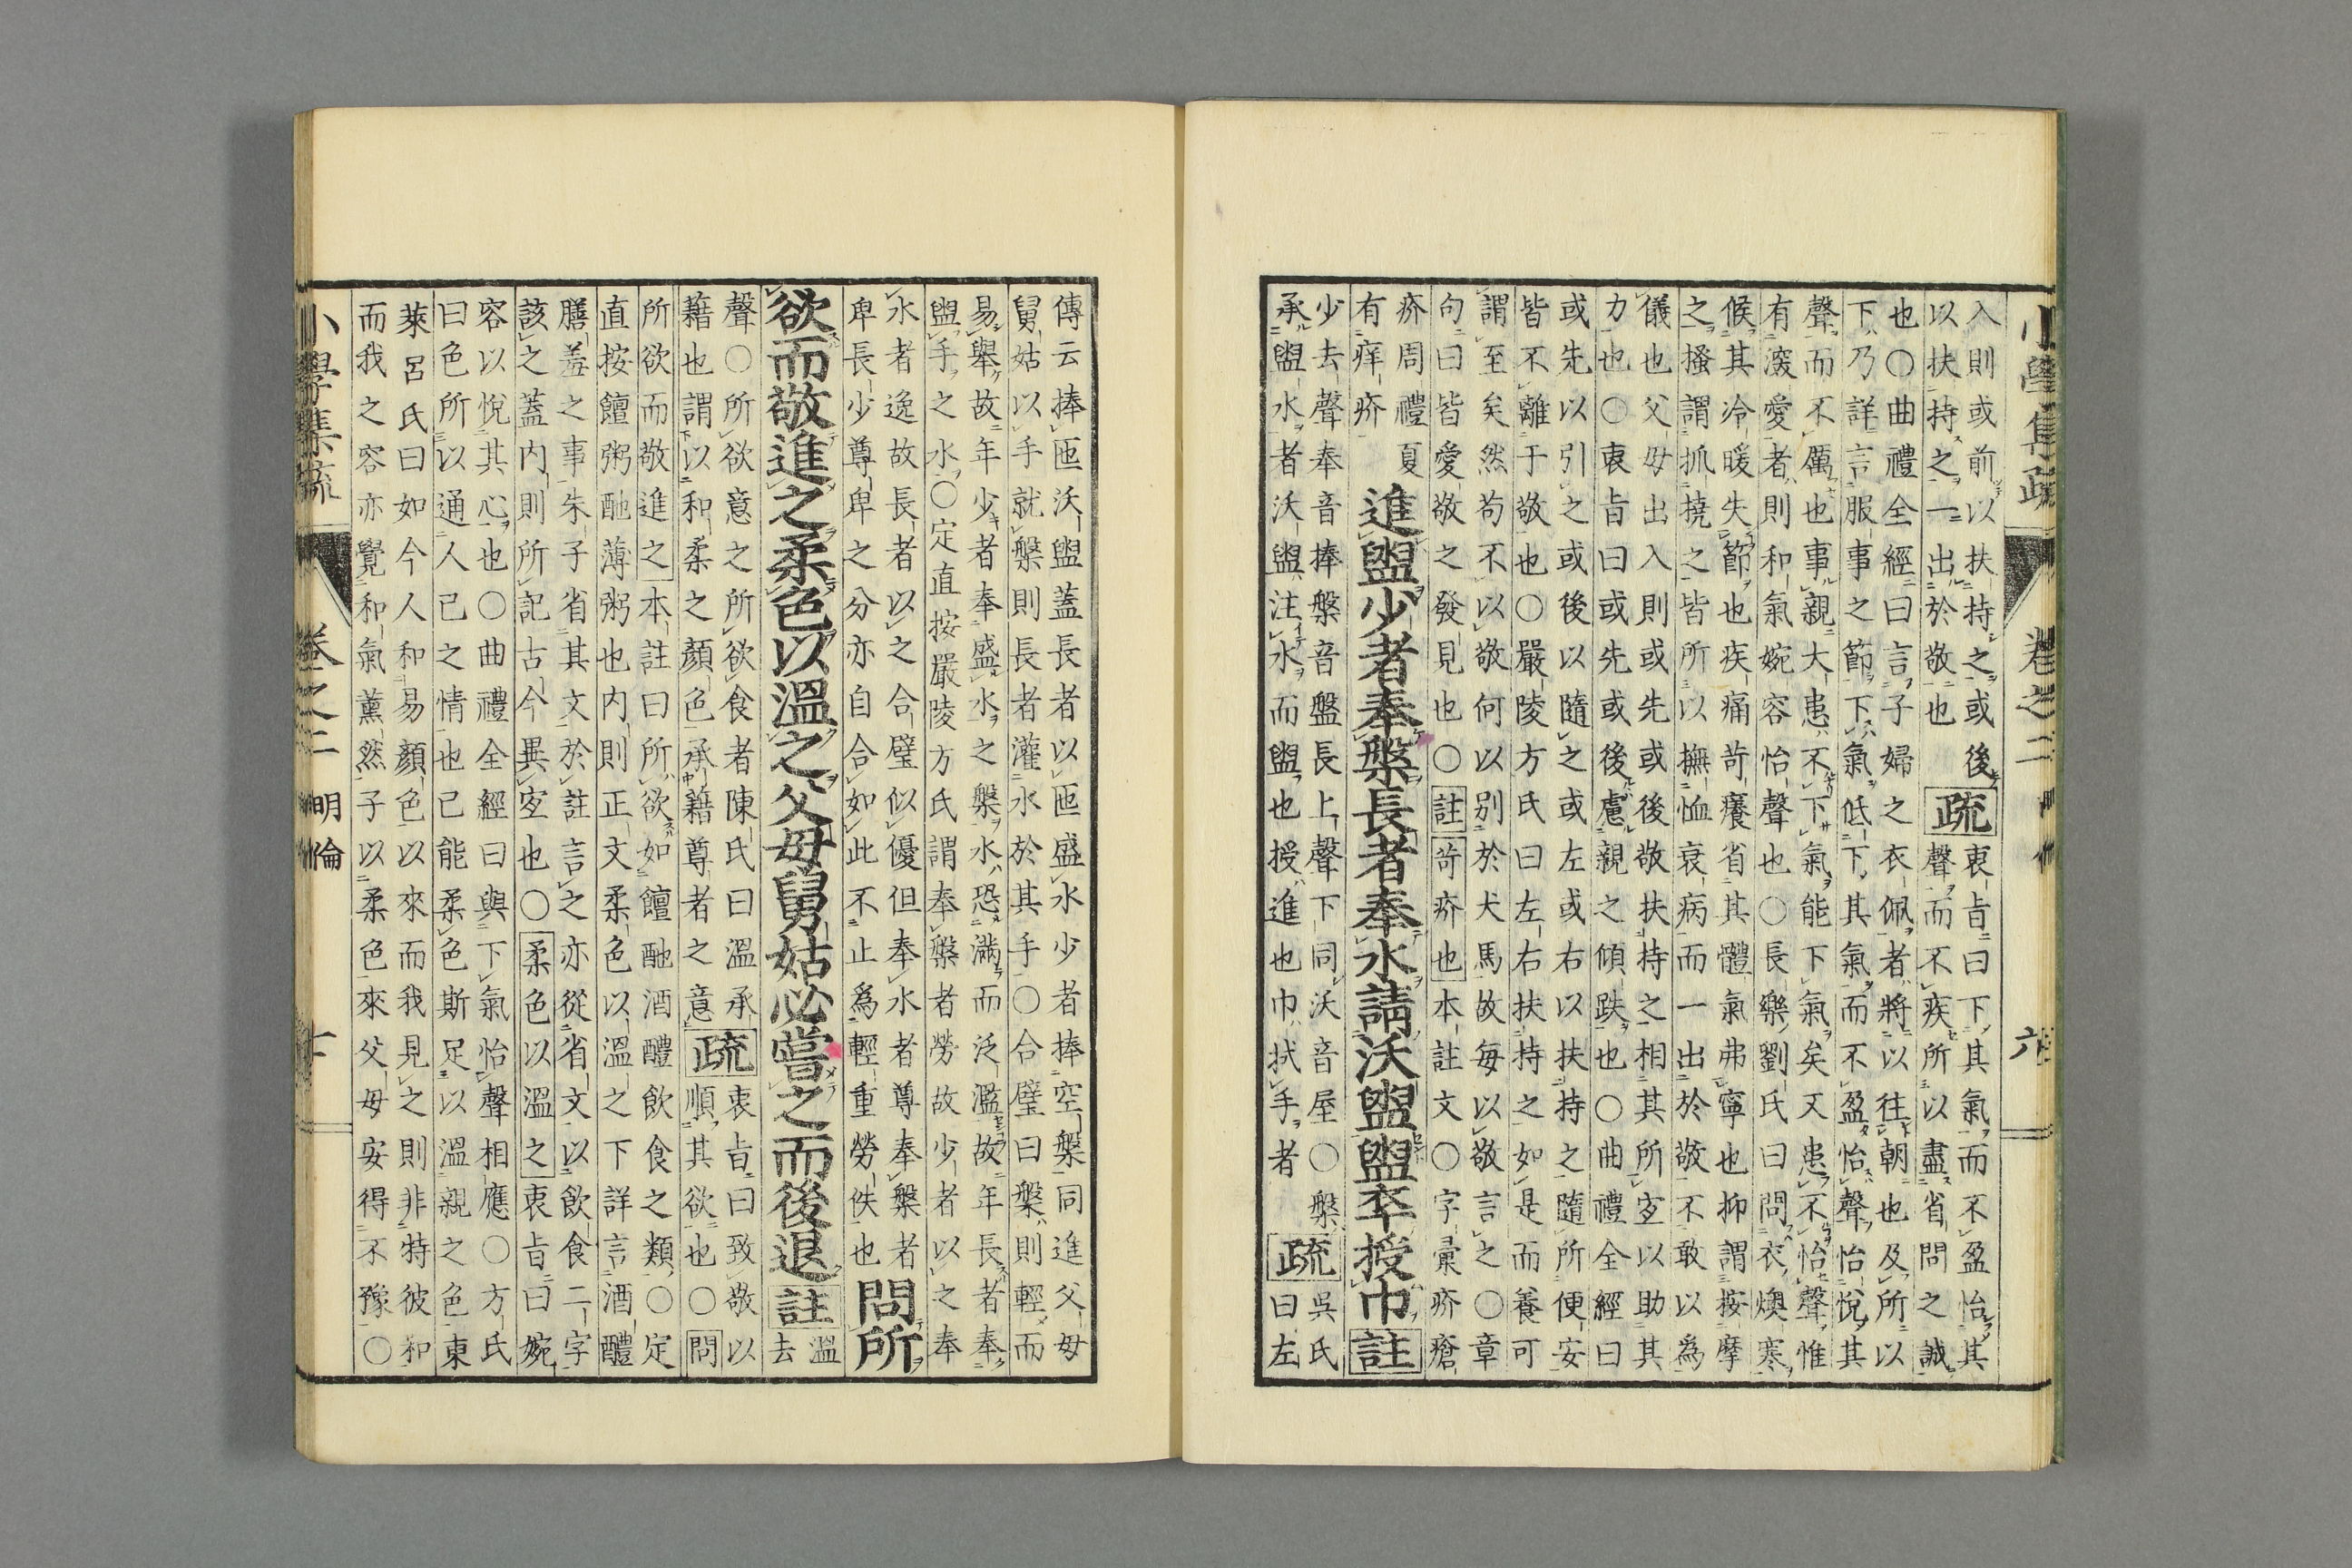 小學集疏 卷之二 六
入則或前以扶持之或後
以扶持之一出於敬也
疏
衷旨曰下其氣而不盈怡其
聲而不疾所以盡省問之誠
也〇曲禮全經曰言子婦之衣佩者將以往朝也及所以
下乃詳言服事之節下氣低下其氣而不盈怡聲怡悅其
聲而不厲也事親大患不下氣能下氣矣又患不怡聲惟
有深愛者則和氣婉容怡聲也〇長樂劉氏曰問衣燠寒
候其冷暖失節也疾痛苛癢省其體氣弗寧也抑謂按摩
之搔謂抓撓之皆所以撫恤衰病而一出於敬不敢以為
儀也父母出入則或先或後敬扶持之相其所宜以助其
力也〇衷旨曰或先或後慮親之傾跌也〇曲禮全經曰
或先以引之或後以隨之或左或右以扶持之隨所便安
皆不離于敬也〇嚴陵方氏曰左右扶持之如是而養可
謂至矣然苟不以敬何以別於犬馬故每以敬言之〇章
句曰皆愛敬之發見也〇註苛疥也本註文〇字彙疥瘡
疥周禮夏
有痒疥
進盥少者奉槃長者奉水請沃盥盥卒授巾註
少去聲奉音捧槃音盤長上聲下同沃音屋〇槃
承盥水者沃盥注水而盥也授進也巾拭手者
疏
吳氏
曰左
傳云捧匜沃盥蓋長者以匜盛水少者捧空槃同進父母
舅姑以手就槃則長者灌水於其手〇合璧曰槃則輕而
易舉故年少者奉盛水之槃水恐滿而泛濫故年長者奉
盥手之水〇定直按嚴陵方氏謂奉槃者勞故少者以之奉
水者逸故長者以之合璧似優但奉水者尊奉槃者
卑長少尊卑之分亦自合如此不止爲輕重勞佚也
問所
欲而敬進之柔色以溫之父母舅姑必嘗之而後退註
溫
去
聲〇所欲意之所欲食者陳氏曰溫承
藉也謂以和柔之顏色承藉尊者之意
疏
衷旨曰致敬以
順其欲也〇問
所欲而敬進之本註曰所欲如饘酏酒醴飲食之類〇定
直按饘粥酏薄粥也内則正文柔色以溫之下詳言酒醴
膳羞之事朱子省其文於註言之亦從省文以飲食二字
該之蓋内則所記古今異宜也〇柔色以溫之衷旨曰婉
容以悅其心也〇曲禮全經曰與下氣怡聲相應〇方氏
曰色所以通人己之情也已能柔色斯足以溫親之色東
萊呂氏曰如今人和易顏色以來而我見之則非特彼和
而我之容亦覺和氣薰然子以柔色來父母安得不豫〇
小學集疏 卷之二 明倫